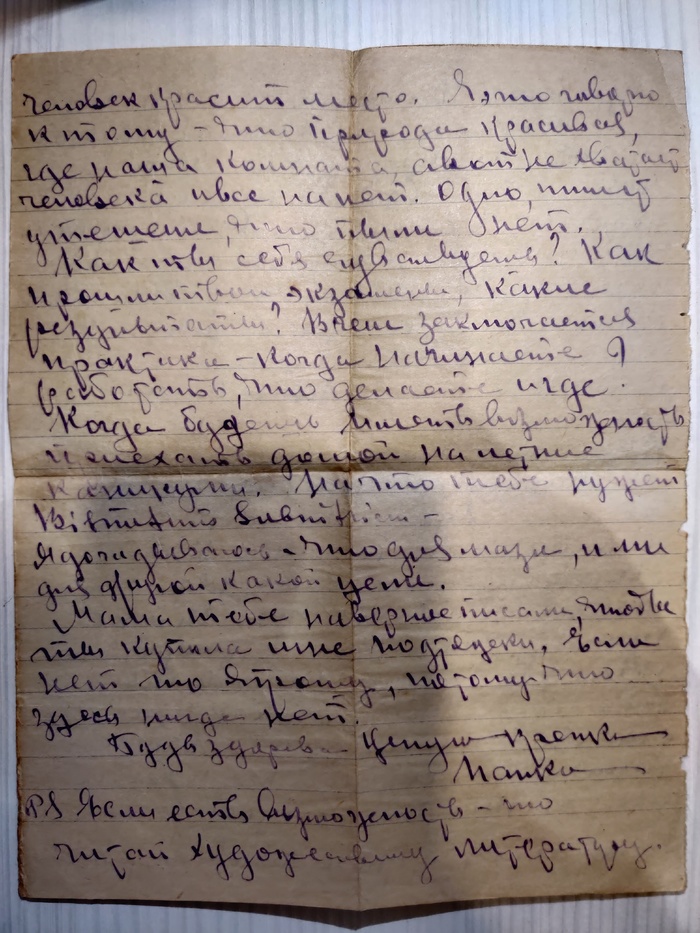 человек красит место. Я это говорю
к тому – что природа красивая,
где наша комната, а вот не хватает
человека и все на нет. Одно, лишь
утешение, что пыли нет.
Как ты себя чувствуешь? Как
прошли твои экзамены, какие
результаты? В чем заключается
практика – когда начинаете
работать, что делаете и где.
Когда будешь иметь возможность
приехать домой на летние
каникулы. На что тебе нужен
Я догадываюсь – что для мази, или
для другой какой цели.
Мама тебе наверное писала, чтобы
ты купила мне подтяжки. Если
нет то я прошу, потому что
здесь нигде нет.
Будь здорова Целую крепко
Папка
PS Если есть возможность – то
читай художественную литературу.